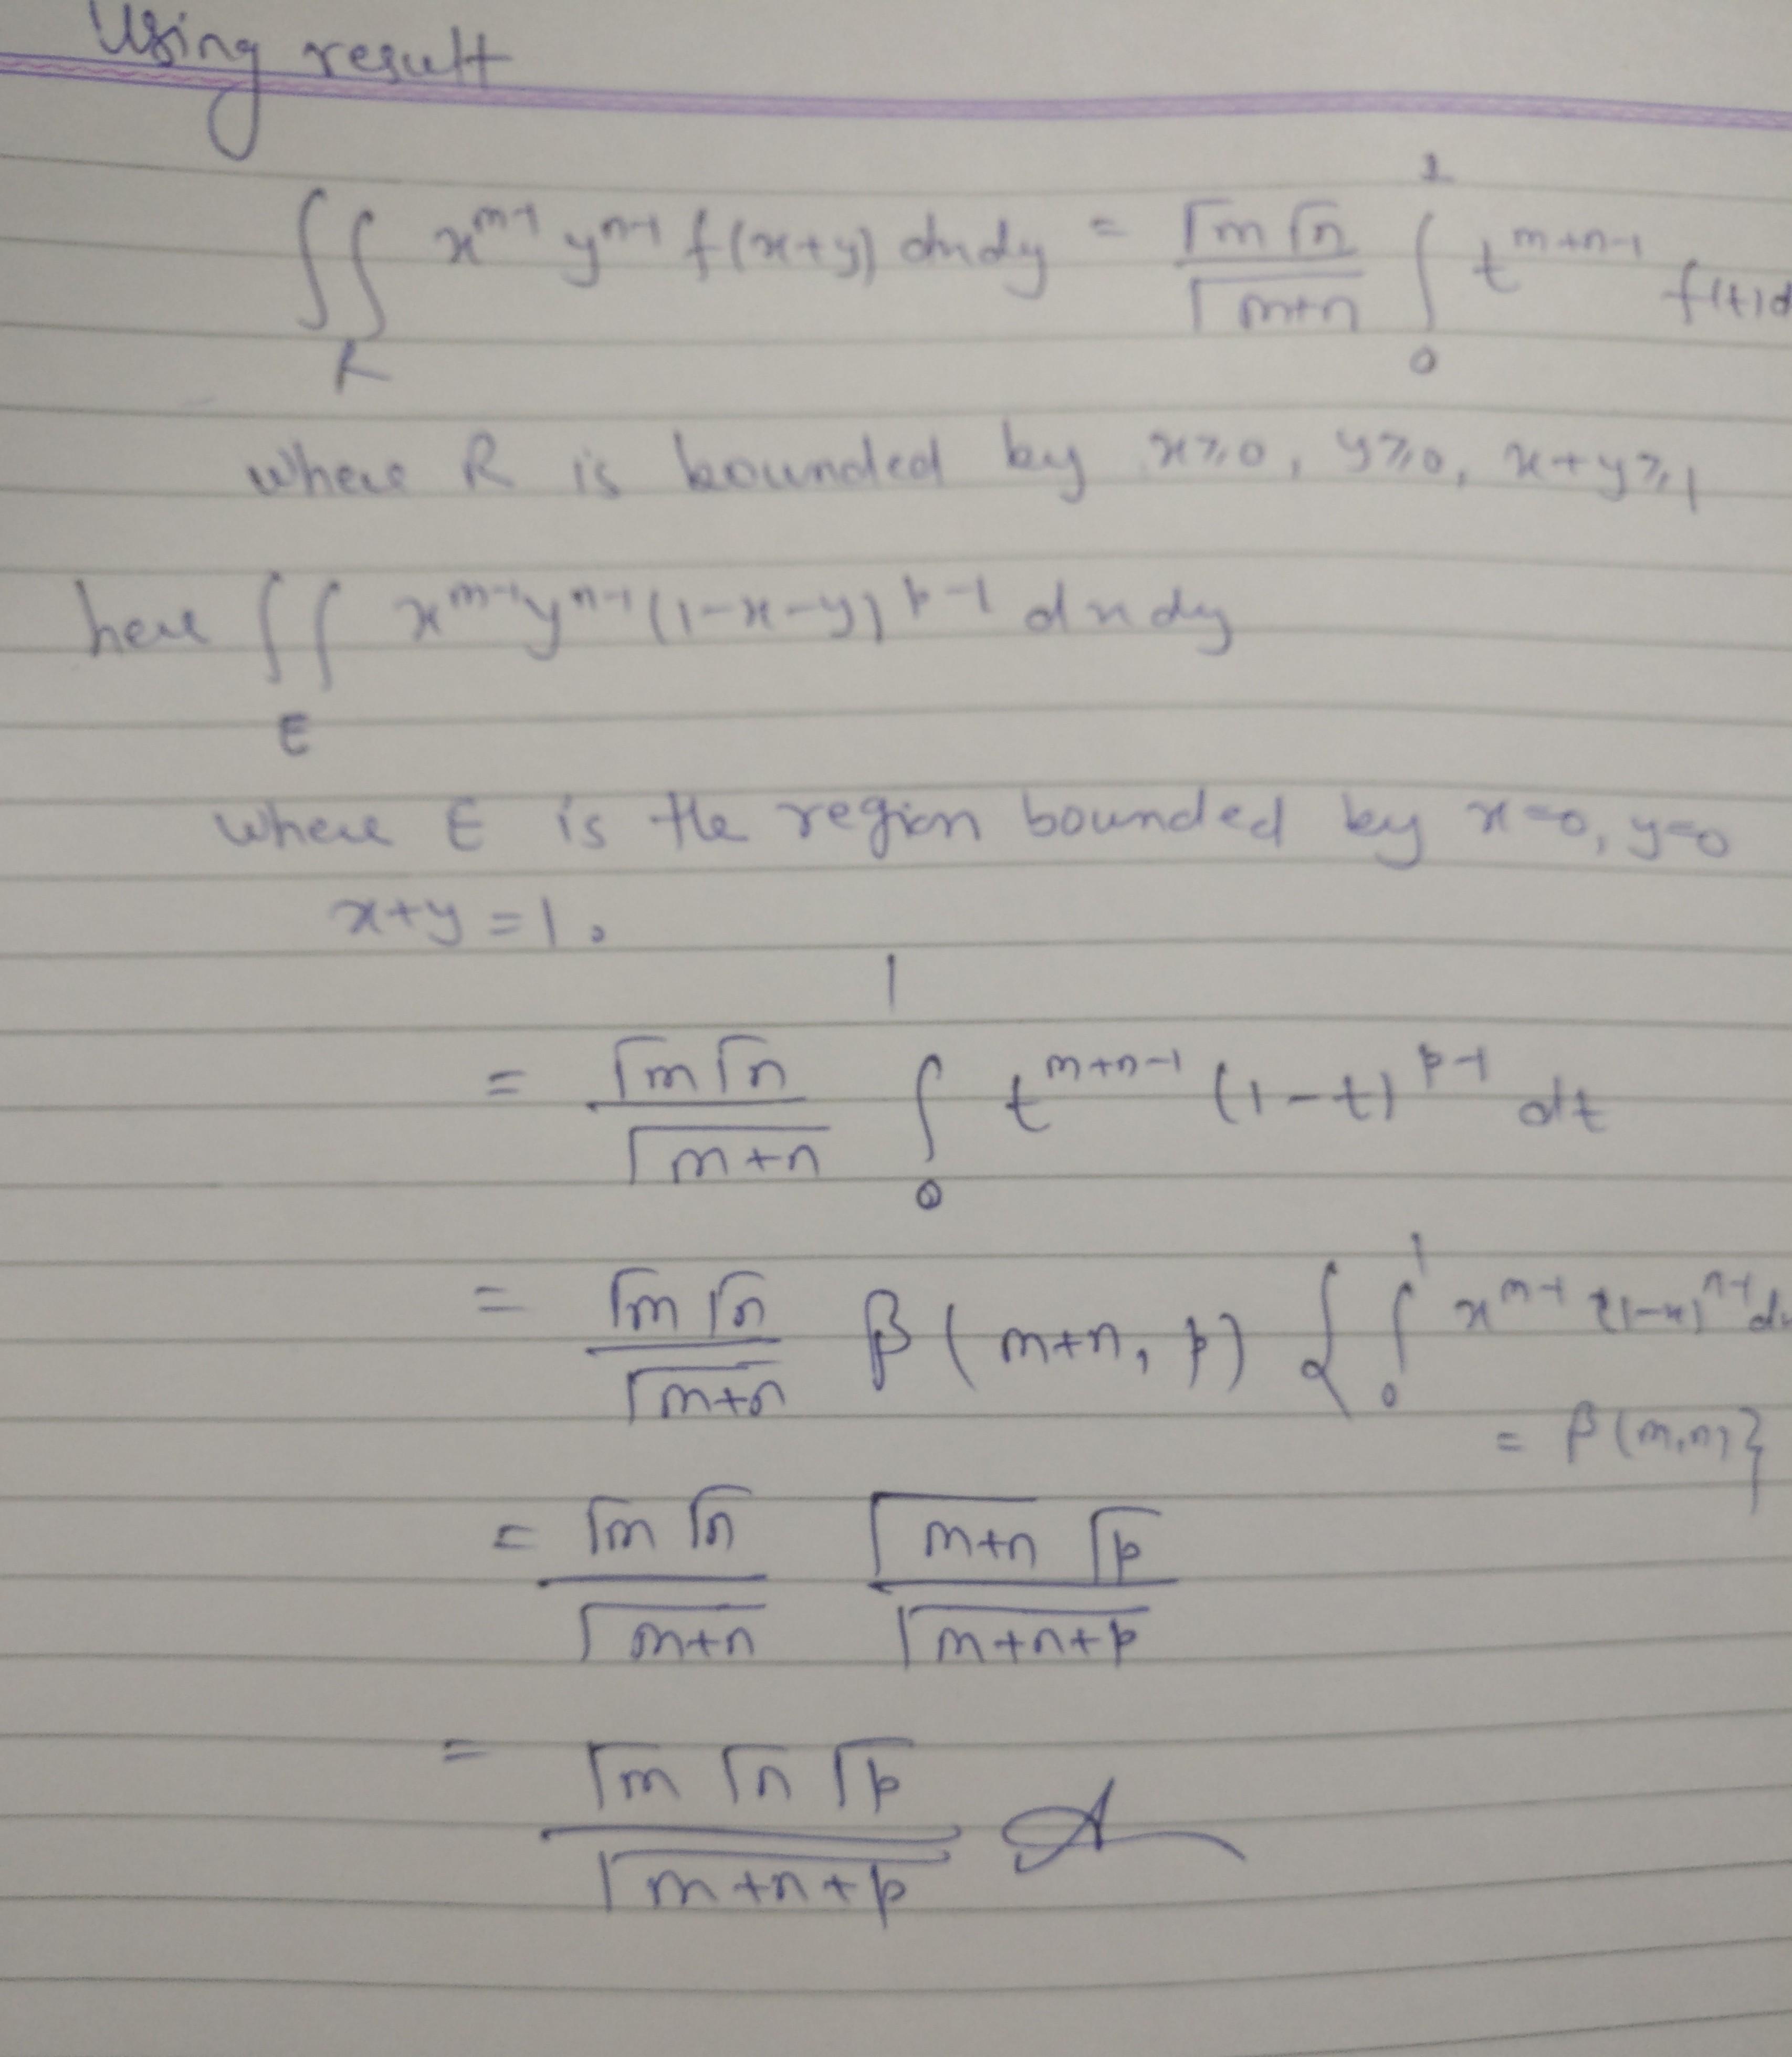 Using result
∬_R x^{m-1} y^{n-1} f(x+y) dxdy = (Γm Γn / Γm+n) ∫_0^1 t^{m+n-1} f(t)d
where R is bounded by x≥0, y≥0, x+y≥1
here ∬_E x^{m-1} y^{n-1} (1-x-y)^{p-1} dxdy
where E is the region bounded by x=0, y=0
x+y=1.
= (Γm Γn / Γm+n) ∫_0^1 t^{m+n-1} (1-t)^{p-1} dt
= (Γm Γn / Γm+n) β(m+n, p) {∫_0^1 x^{m-1} (1-x)^{n-1} dx
= β(m,n)}
= (Γm Γn / Γm+n) (Γm+n Γp / Γm+n+p)
= Γm Γn Γp / Γm+n+p